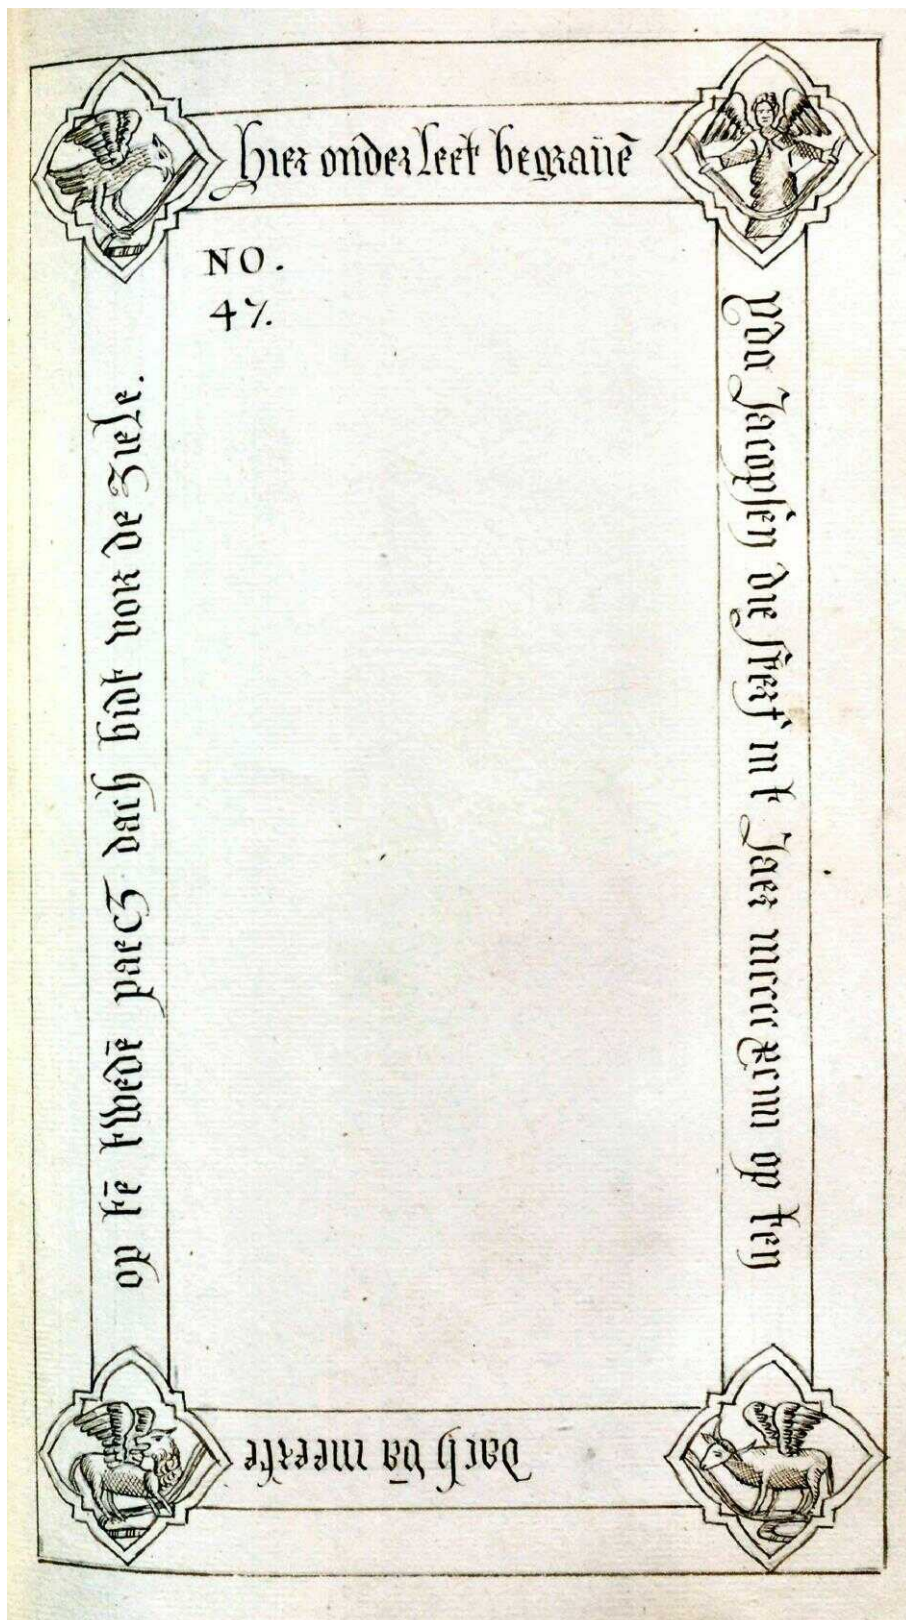 hier onder leet begrauē
Yda Jacopsen die sterf int Jaer mcccc xciiii op ten
dach vā meerte
op tē twedē paesch dach bidt vor de ziele.
NO.
47.